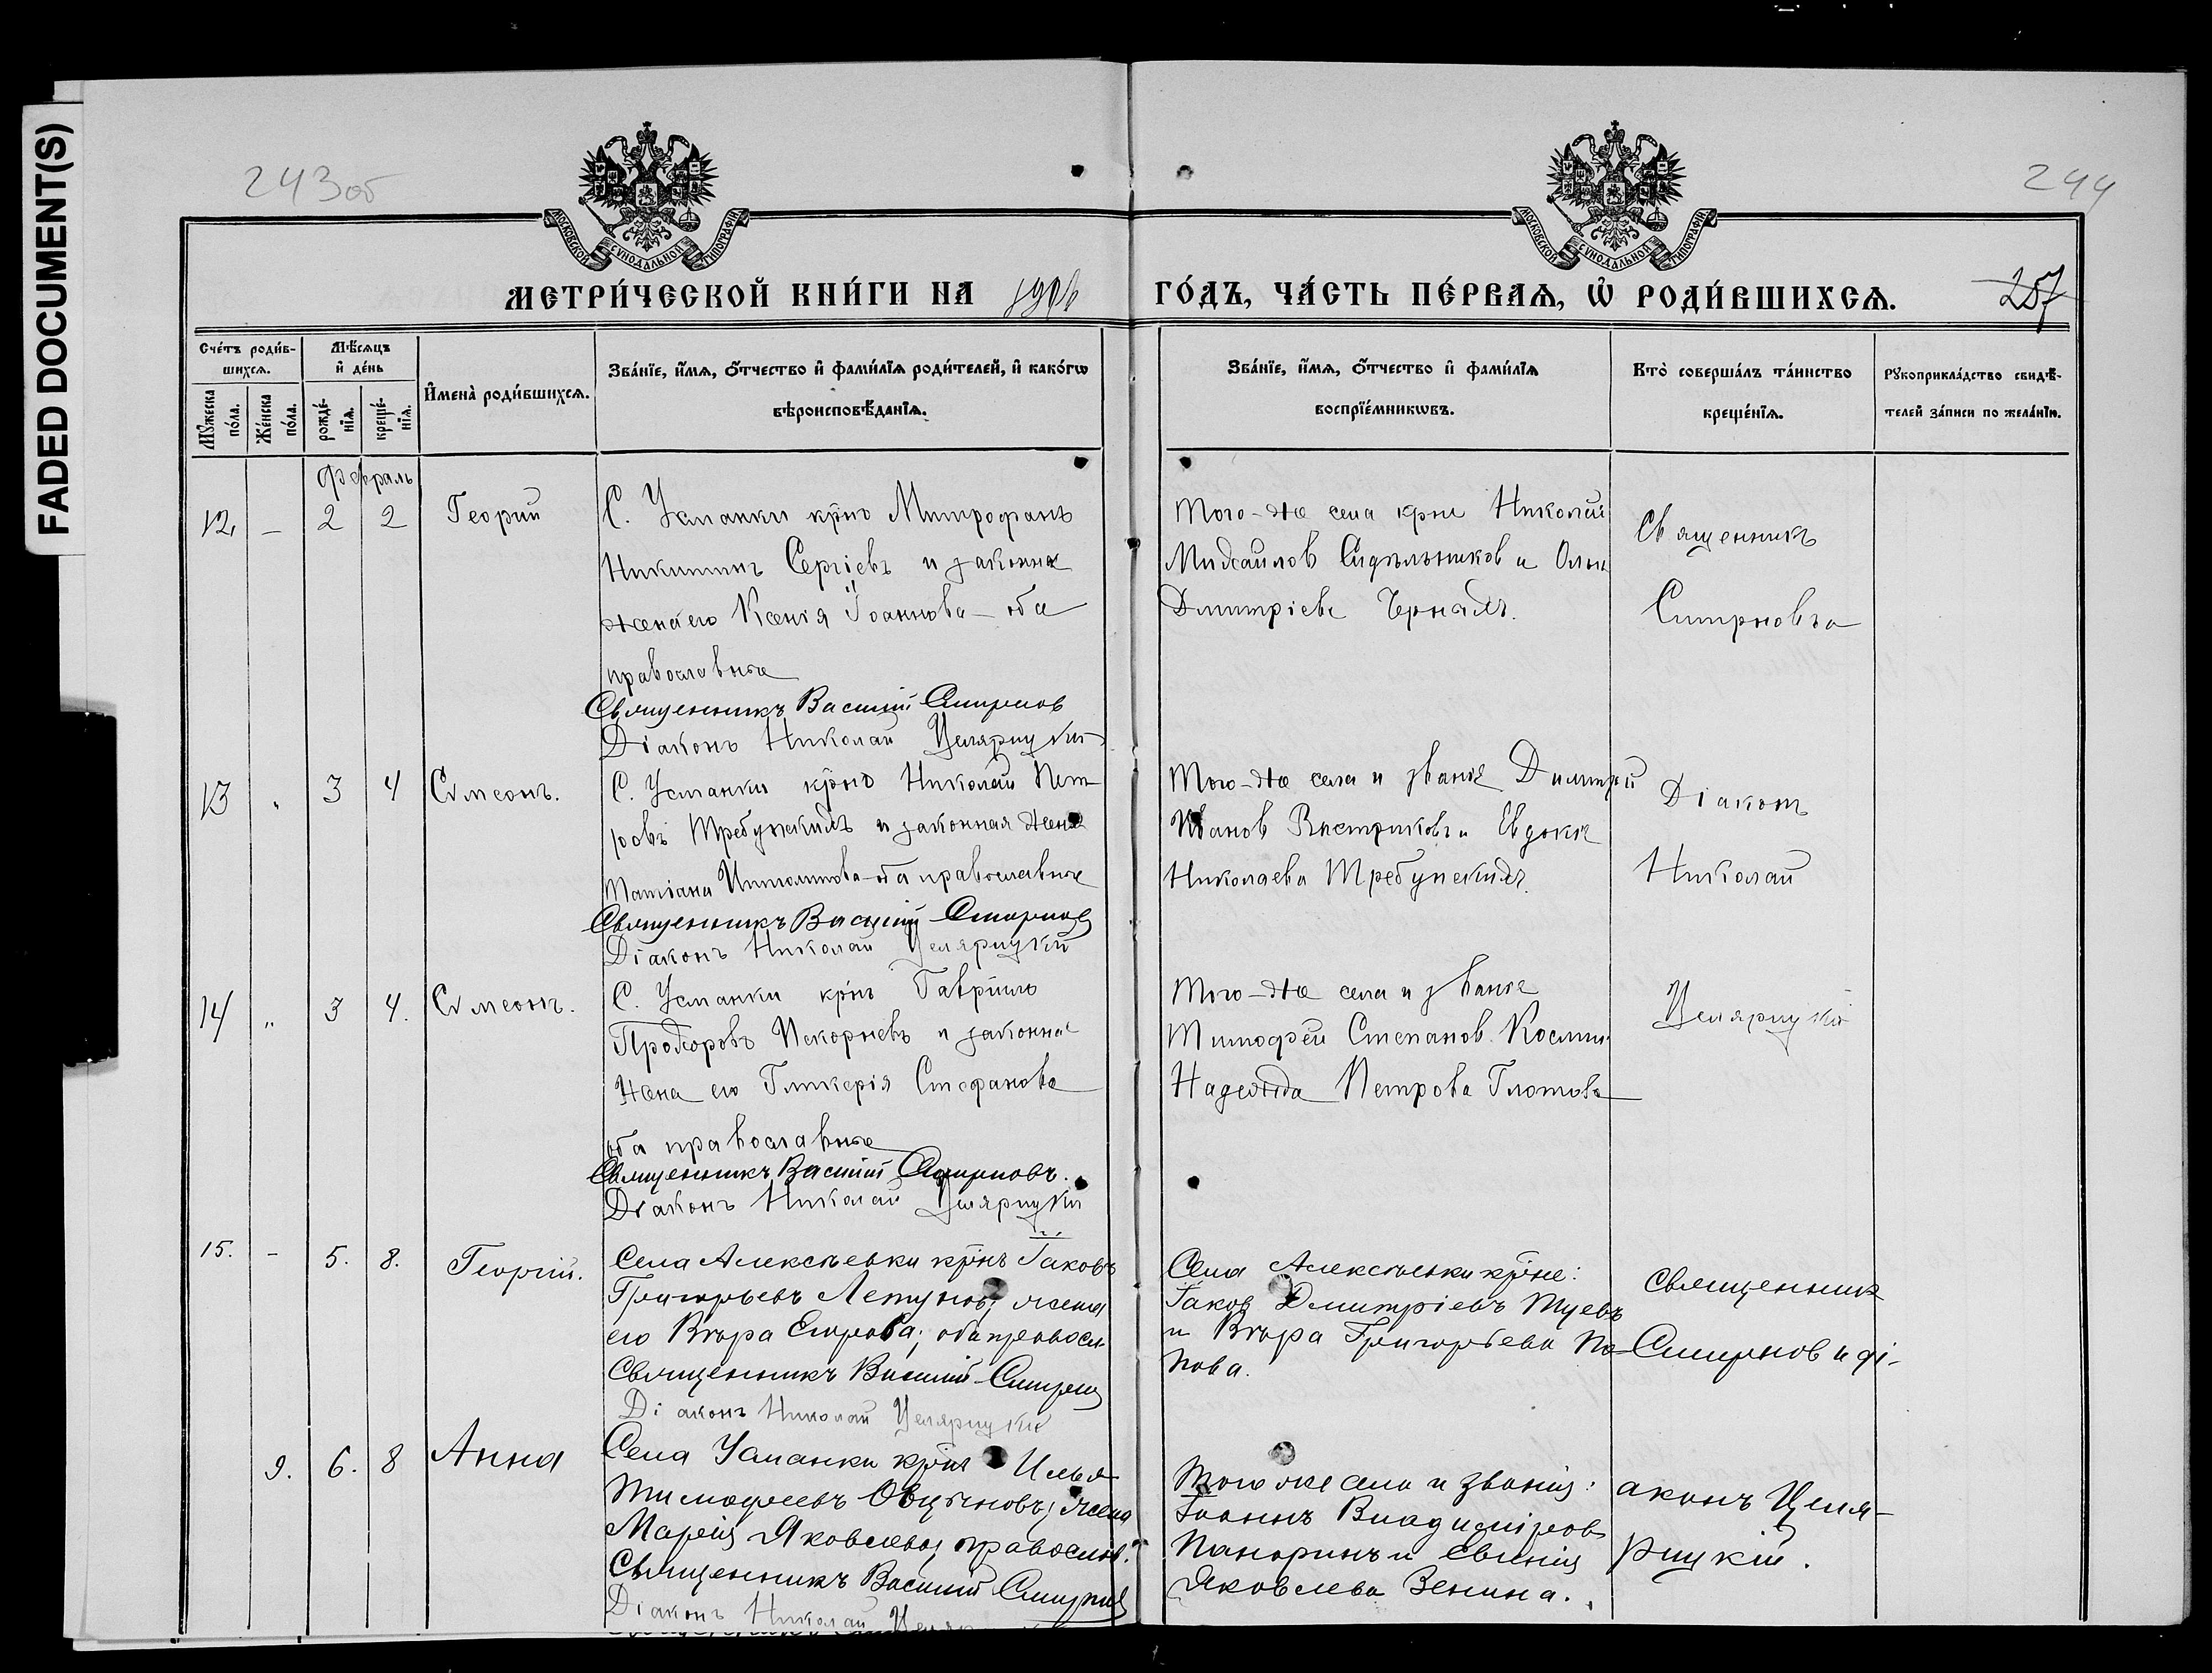 FADED DOCUMENT(S)
243об
244
МОСКОВСКОЙ СѴНОДАЛЬНОЙ ТИПОГРАФІИ
МОСКОВСКОЙ СѴНОДАЛЬНОЙ ТИПОГРАФІИ
МЕТРИ́ЧЕСКОЙ КНИ́ГИ НА 1906 ГО́ДЪ, ЧА́СТЬ ПЕ́РВАѦ, Ѡ҆ РОДИ́ВШИХСѦ.
257
Сче́тъ роди́в-
шихсѧ.
Мꙋ́жеска по́ла.
Же́нска по́ла.
Мѣ́сѧцъ
и҆ де́нь
рожде́-
нїѧ.
креще́-
нїѧ.
И҆мена̀ роди́вшихсѧ.
Зва́нїе, и҆́мѧ, ѻ҆́тчество и҆ фами́лїѧ роди́телей, и҆ како́гѡ
вѣроисповѣ́данїѧ.
Зва́нїе, и҆́мѧ, ѻ҆́тчество и҆ фами́лїѧ
воспрїе́мникѡвъ.
Кто̀ соверша́лъ та́инство
креще́нїѧ.
Рꙋкоприкла́дство свидѣ́-
телей за́писи по жела́нїю.
Февраль
12. – 2 2 Георгій
С. Усманки крнъ Митрофанъ
Никитинъ Сергіевъ и законна
жена его Ксенія Іоаннова – оба
православные
Священникъ Василій Смирнов
Діаконъ Николай Целярицкій
Того-же села крне Николай
Михаилов Сидѣльников и
Дмитріева
Священникъ
Смирновъ
13 " 3 4 Симеонъ.
С. Усманки крнъ Николай Пет-
ровъ Требунскихъ и законная жена
Татіана Ипполитова – оба православные
Священникъ Василій Смирнов
Діаконъ Николай Целярицкій
Того-же села и званія Димитрій
Иванов Быстриковъ и Евдокія
Николаева Требунскихъ.
Діаконъ
Николай
14 " 3 4. Симеонъ.
С. Усманки крнъ Гавріилъ
Прохоровъ Искорневъ и законная
жена его Гликерія Стефанова
оба православные
Священникъ Василій Смирновъ.
Діаконъ Николай Целярицкій
Того-же села и званія
Тимофей Степанов
Надежда Петрова Глотова
Целярицкій
15. – 5. 8. Георгій.
Села Алексѣевки крнъ Іаковъ
Григорьевъ Летунов; жена
его Вѣра Егорова; оба правосл.
Священникъ Василій Смирнов
Діаконъ Николай Целярицкій
Села Алексѣевки крне:
Іаков Дмитріевъ Туевъ
и Вѣра Григорьева По-
пова.
Священник
Смирнов и ді-
9. 6. 8 Анна
Села Усманки крнъ Илья
Тимофеевъ Овцыновъ; жена
Марія Яковлева, православ.
Священникъ Василій Смирнов
Діаконъ Николай
Того же села и званія:
Іоаннъ Владиміров
Панаринъ и Евгенія
Яковлева Зенина.
аконъ Целя-
рицкій.